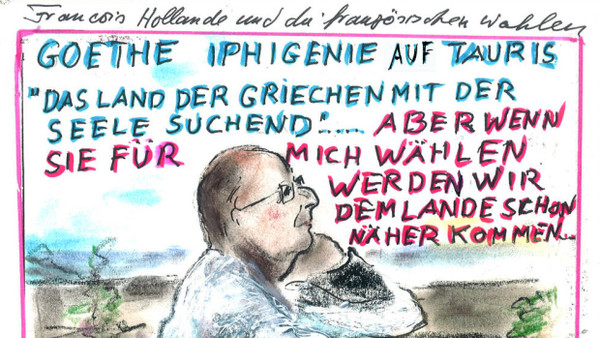 Francois Hollande und die französischen Wahlen
GOETHE IPHIGENIE AUF TAURIS
"DAS LAND DER GRIECHEN MIT DER
SEELE SUCHEND"..... ABER WENN
SIE FÜR MICH WÄHLEN
WERDEN WIR
DEM LANDE SCHON
NÄHER KOMMEN...